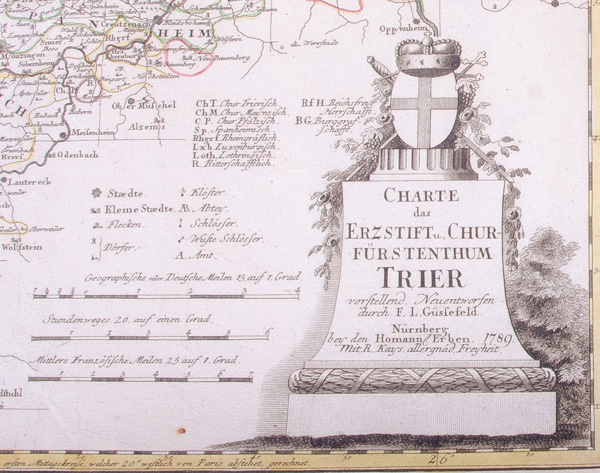 Oppenheim
Creutzenach
HEIM
Wolfstein
Werrstadt
Neu Baumberg
Simmern
Monzingen
Ober Müschel
Alzem
Meisenheim
Odenbach
Lautereck
Ober weiler
Wolfstein
ChT. Chur Trierisch.
Ch.M. Chur Maÿnzisch.
C.P. Chur Pfälzisch
Sp. Spanheimisch
Rhgrf. Rheingräflich
Lxb. Luxenburgisch.
Loth. Lothringisch.
R. Ritterschafftlich
RfH. Reichsfreÿ
Herrschafft
BG. Burggraf
schafft
Stædte.
Kleine Stædte.
Flecken.
Dörfer.
Klöster.
Abteÿ.
Schlösser.
Wüste Schlösser.
A. Amt.
Geographische oder Deutsche Meilen 15 auf 1. Grad.
Stundenweges 20. auf einen Grad.
1 2 3 4 5 6
Mittlere Französische Meilen 25 auf 1. Grad.
CHARTE
das
ERZSTIFT u. CHUR-
FÜRSTENTHUM
TRIER
vorstellend, Neuentworfen
durch F. L. Güssefeld.
Nürnberg
beÿ den Homann. Erben. 1789.
Mit R. Kays. allergnäd. Freÿheit.
ersten Mittagskreise, welcher 20° westlich von Paris abstehet, gerechnet.
26°